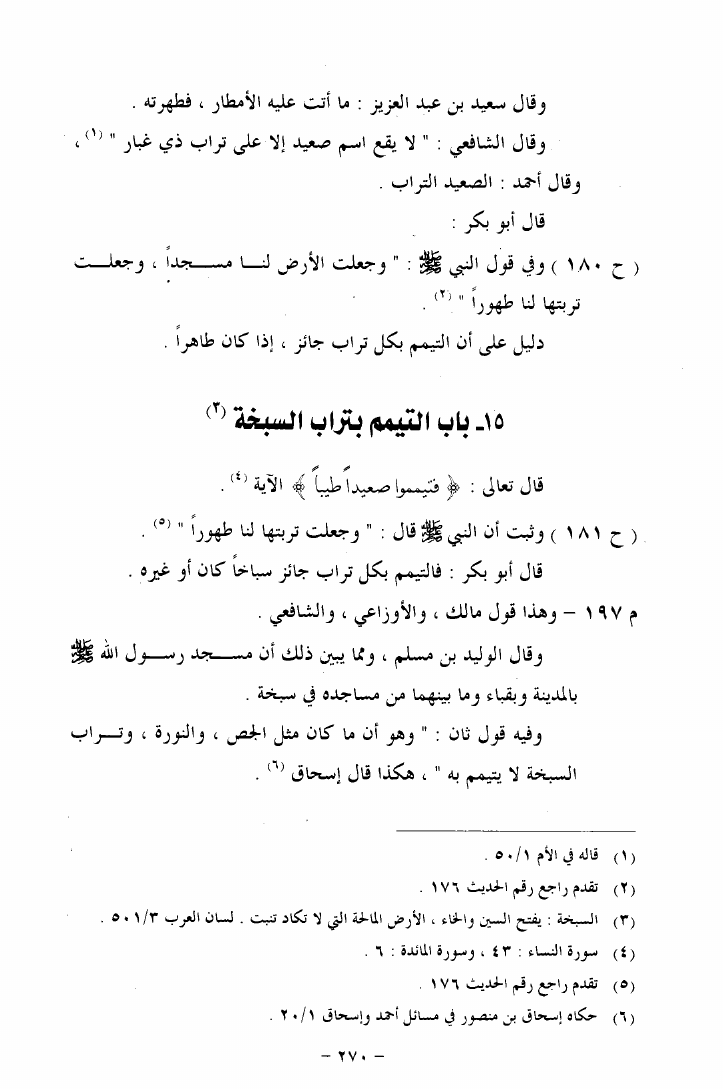 وقال سعيد بن عبد العزيز : ما أتت عليه الأمطار ، فطهرته .
وقال الشافعي : " لا يقع اسم صعيد إلا على تراب ذي غبار " (١) ،
وقال أحمد : الصعيد التراب .
قال أبو بكر :
( ح ١٨٠ ) وفي قول النبي ﷺ : " وجعلت الأرض لنـا مسـجداً ، وجعلـت
تربتها لنا طهوراً " (٢) .
دليل على أن التيمم بكل تراب جائز ، إذا كان طاهراً .
١٥ـ باب التيمم بتراب السبخة (٣)
قال تعالى : ﴿ فتيمموا صعيداً طيباً ﴾ الآية (٤) .
( ح ١٨١ ) وثبت أن النبي ﷺ قال : " وجعلت تربتها لنا طهوراً " (٥) .
قال أبو بكر : فالتيمم بكل تراب جائز سباخاً كان أو غيره .
م ١٩٧ – وهذا قول مالك ، والأوزاعي ، والشافعي .
وقال الوليد بن مسلم ، ومما يبين ذلك أن مسـجد رسـول الله ﷺ
بالمدينة وبقباء وما بينهما من مساجده في سبخة .
وفيه قول ثان : " وهو أن ما كان مثل الجص ، والنورة ، وتـراب
السبخة لا يتيمم به " ، هكذا قال إسحاق (٦) .
(١) قاله في الأم ٥٠/١ .
(٢) تقدم راجع رقم الحديث ١٧٦ .
(٣) السبخة : يفتح السين والخاء ، الأرض المالحة التي لا تكاد تنبت . لسان العرب ٥٠١/٣ .
(٤) سورة النساء : ٤٣ ، وسورة المائدة : ٦ .
(٥) تقدم راجع رقم الحديث ١٧٦ .
(٦) حكاه إسحاق بن منصور في مسائل أحمد وإسحاق ٢٠/١ .
– ٢٧٠ –